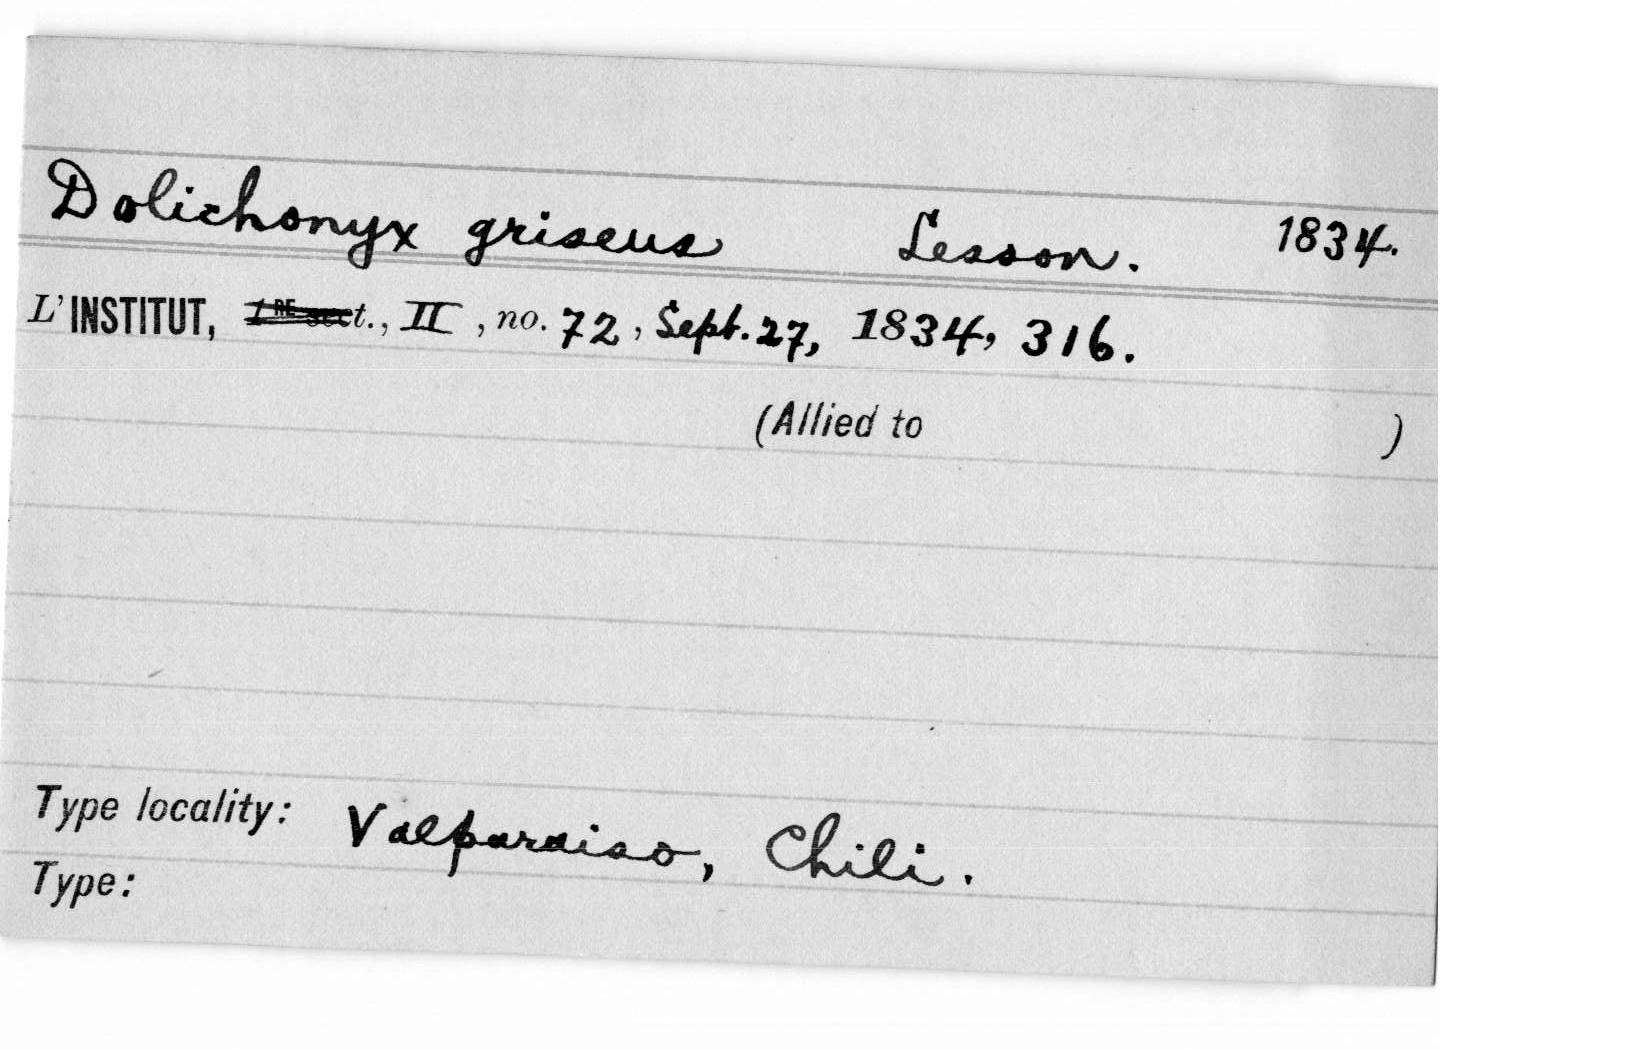 Dolichonyx griseus Lesson. 1834.
L'INSTITUT, 1RE sect., II, no. 72, Sept. 27, 1834, 316.
(Allied to )
Type locality: Valparaiso, Chili.
Type: